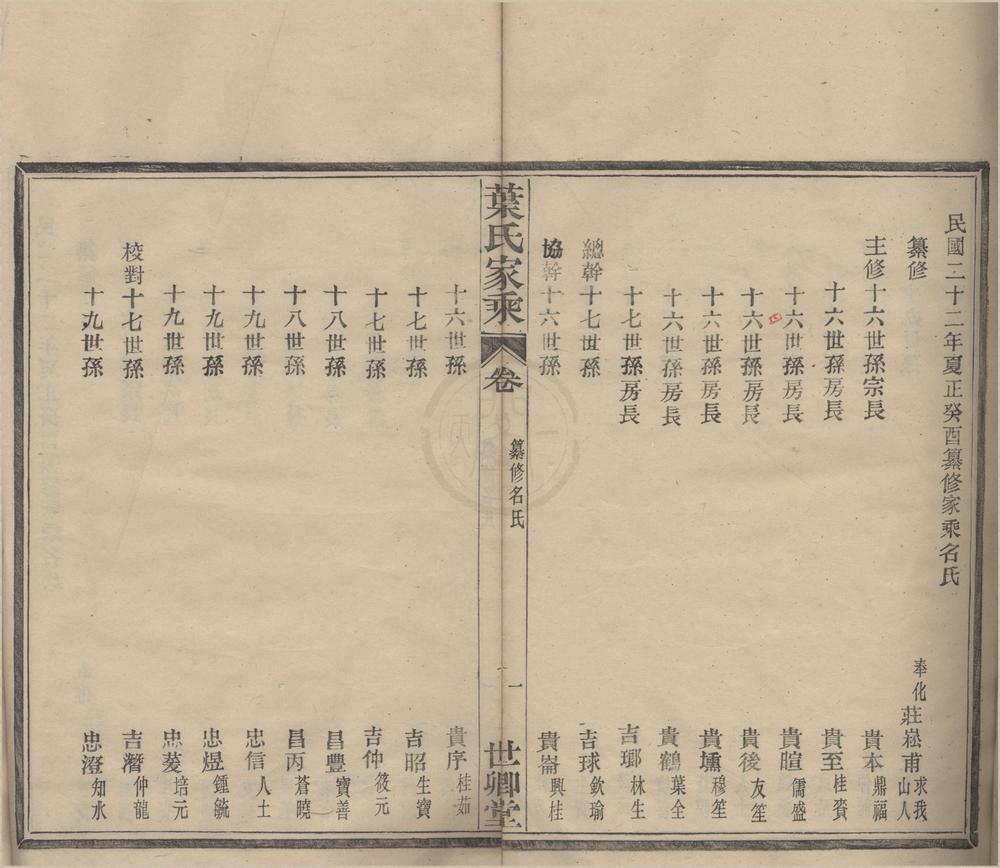 民國二十二年夏正癸酉纂修家乘名氏
纂修 奉化莊崧甫求我山人
主修十六世孫宗長 貴本鼎福
十六世孫房長 貴至桂賚
十六世孫房長 貴暄儒盛
十六世孫房長 貴後友笙
十六世孫房長 貴壎穆笙
十六世孫房長 貴鶴葉全
十七世孫房長 吉瑯林生
總幹十七世孫 吉球欽瑜
協幹十六世孫 貴崙興桂
葉氏家乘 卷 纂修名氏 一 世卿堂
十六世孫 貴序桂茹
十七世孫 吉昭生寶
十七世孫 吉仲筱元
十八世孫 昌豐寶善
十八世孫 昌丙蒼曉
十九世孫 忠信人土
十九世孫 忠煜鍾毓
十九世孫 忠菱培元
校對十七世孫 吉潛仲龍
十九世孫 忠澄知水